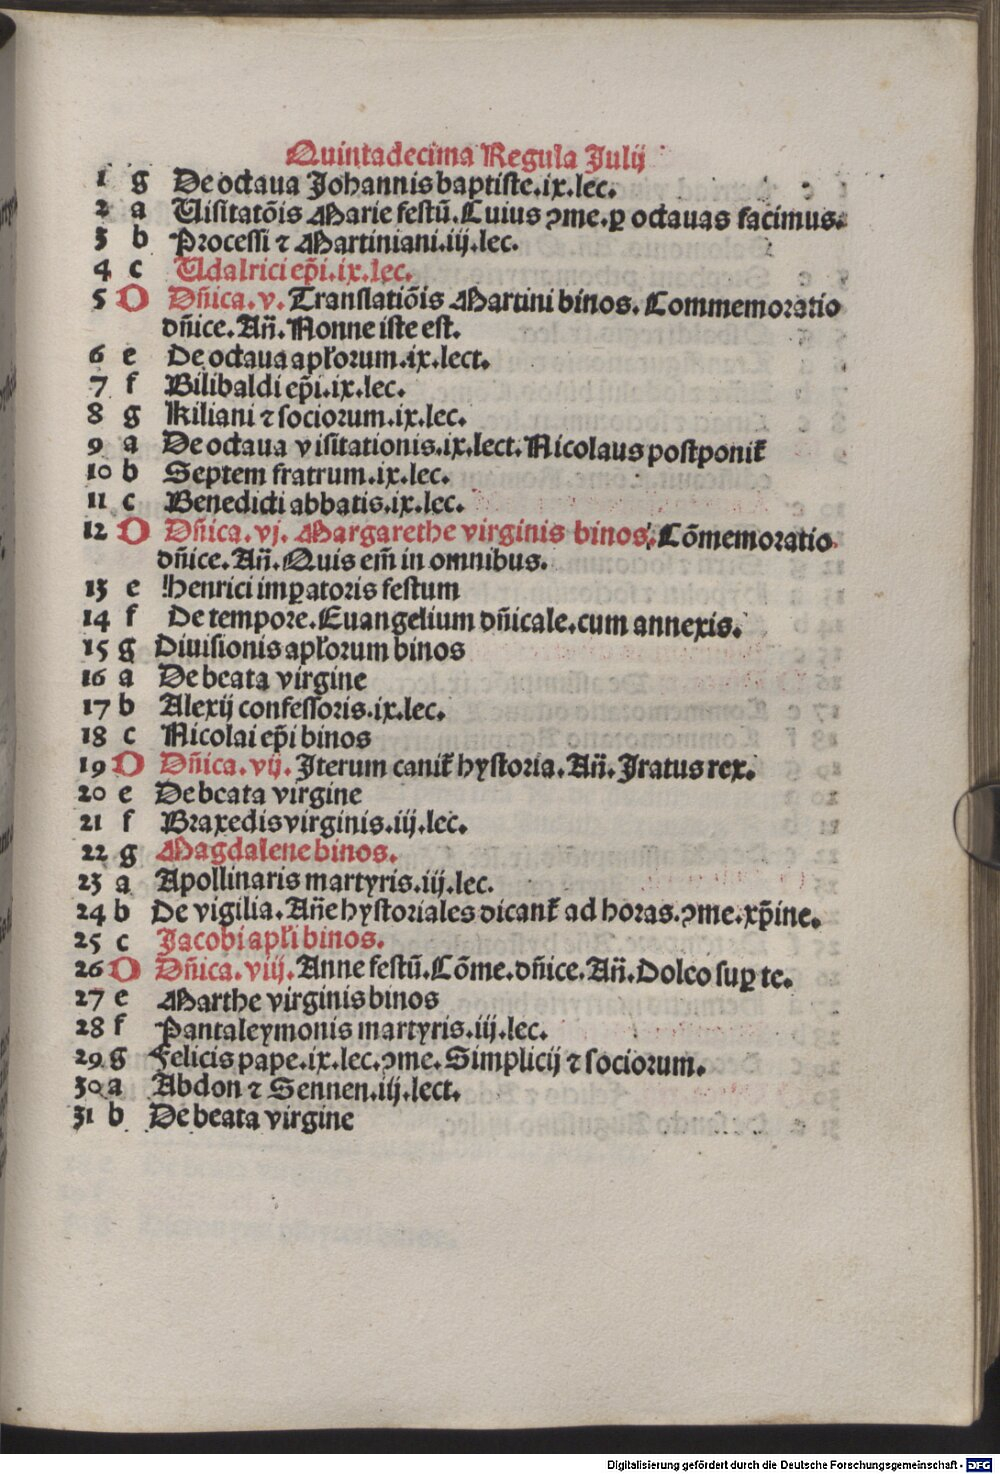 Quintadecima Regula Julij
1 g De octaua Johannis baptiste.ix.lec.
2 a Uisitatõis Marie festũ.Cuius ꝯme.ꝑ octauas facimus.
3 b Processi ⁊ Martiniani.iij.lec.
4 c Udalrici ep̃i.ix.lec.
5 D Dñica.v.Translatiõis Martini binos.Commemoratio
dñice.Añ.Nonne iste est.
6 e De octaua apl̃orum.ix.lect.
7 f Bilibaldi ep̃i.ix.lec.
8 g Kiliani ⁊ sociorum.ix.lec.
9 a De octaua visitationis.ix.lect.Nicolaus postponit᷑
10 b Septem fratrum.ix.lec.
11 c Benedicti abbatis.ix.lec.
12 D Dñica.vj.Margarethe virginis binos.Cõmemoratio
dñice.Añ.Quis em̃ in omnibus.
13 e Henrici imꝑatoris festum
14 f De tempore.Euangelium dñicale.cum annexis.
15 g Diuisionis apl̃orum binos
16 a De beata virgine
17 b Alexij confessoris.ix.lec.
18 c Nicolai ep̃i binos
19 D Dñica.vij.Iterum canit᷑ hystoria.Añ.Iratus rex.
20 e De beata virgine
21 f Braxedis virginis.iij.lec.
22 g Magdalene binos.
23 a Apollinaris martyris.iij.lec.
24 b De vigilia.Añe hystoriales dicant᷑ ad horas.ꝯme.xp̃ine.
25 c Jacobi apl̃i binos.
26 D Dñica.viij.Anne festũ.Cõme.dñice.Añ.Doleo suꝑ te.
27 e Marthe virginis binos
28 f Pantaleymonis martyris.iij.lec.
29 g Felicis pape.ix.lec.ꝯme.Simplicij ⁊ sociorum.
30 a Abdon ⁊ Sennen.iij.lect.
31 b De beata virgine
Digitalisierung gefördert durch die Deutsche Forschungsgemeinschaft - DFG